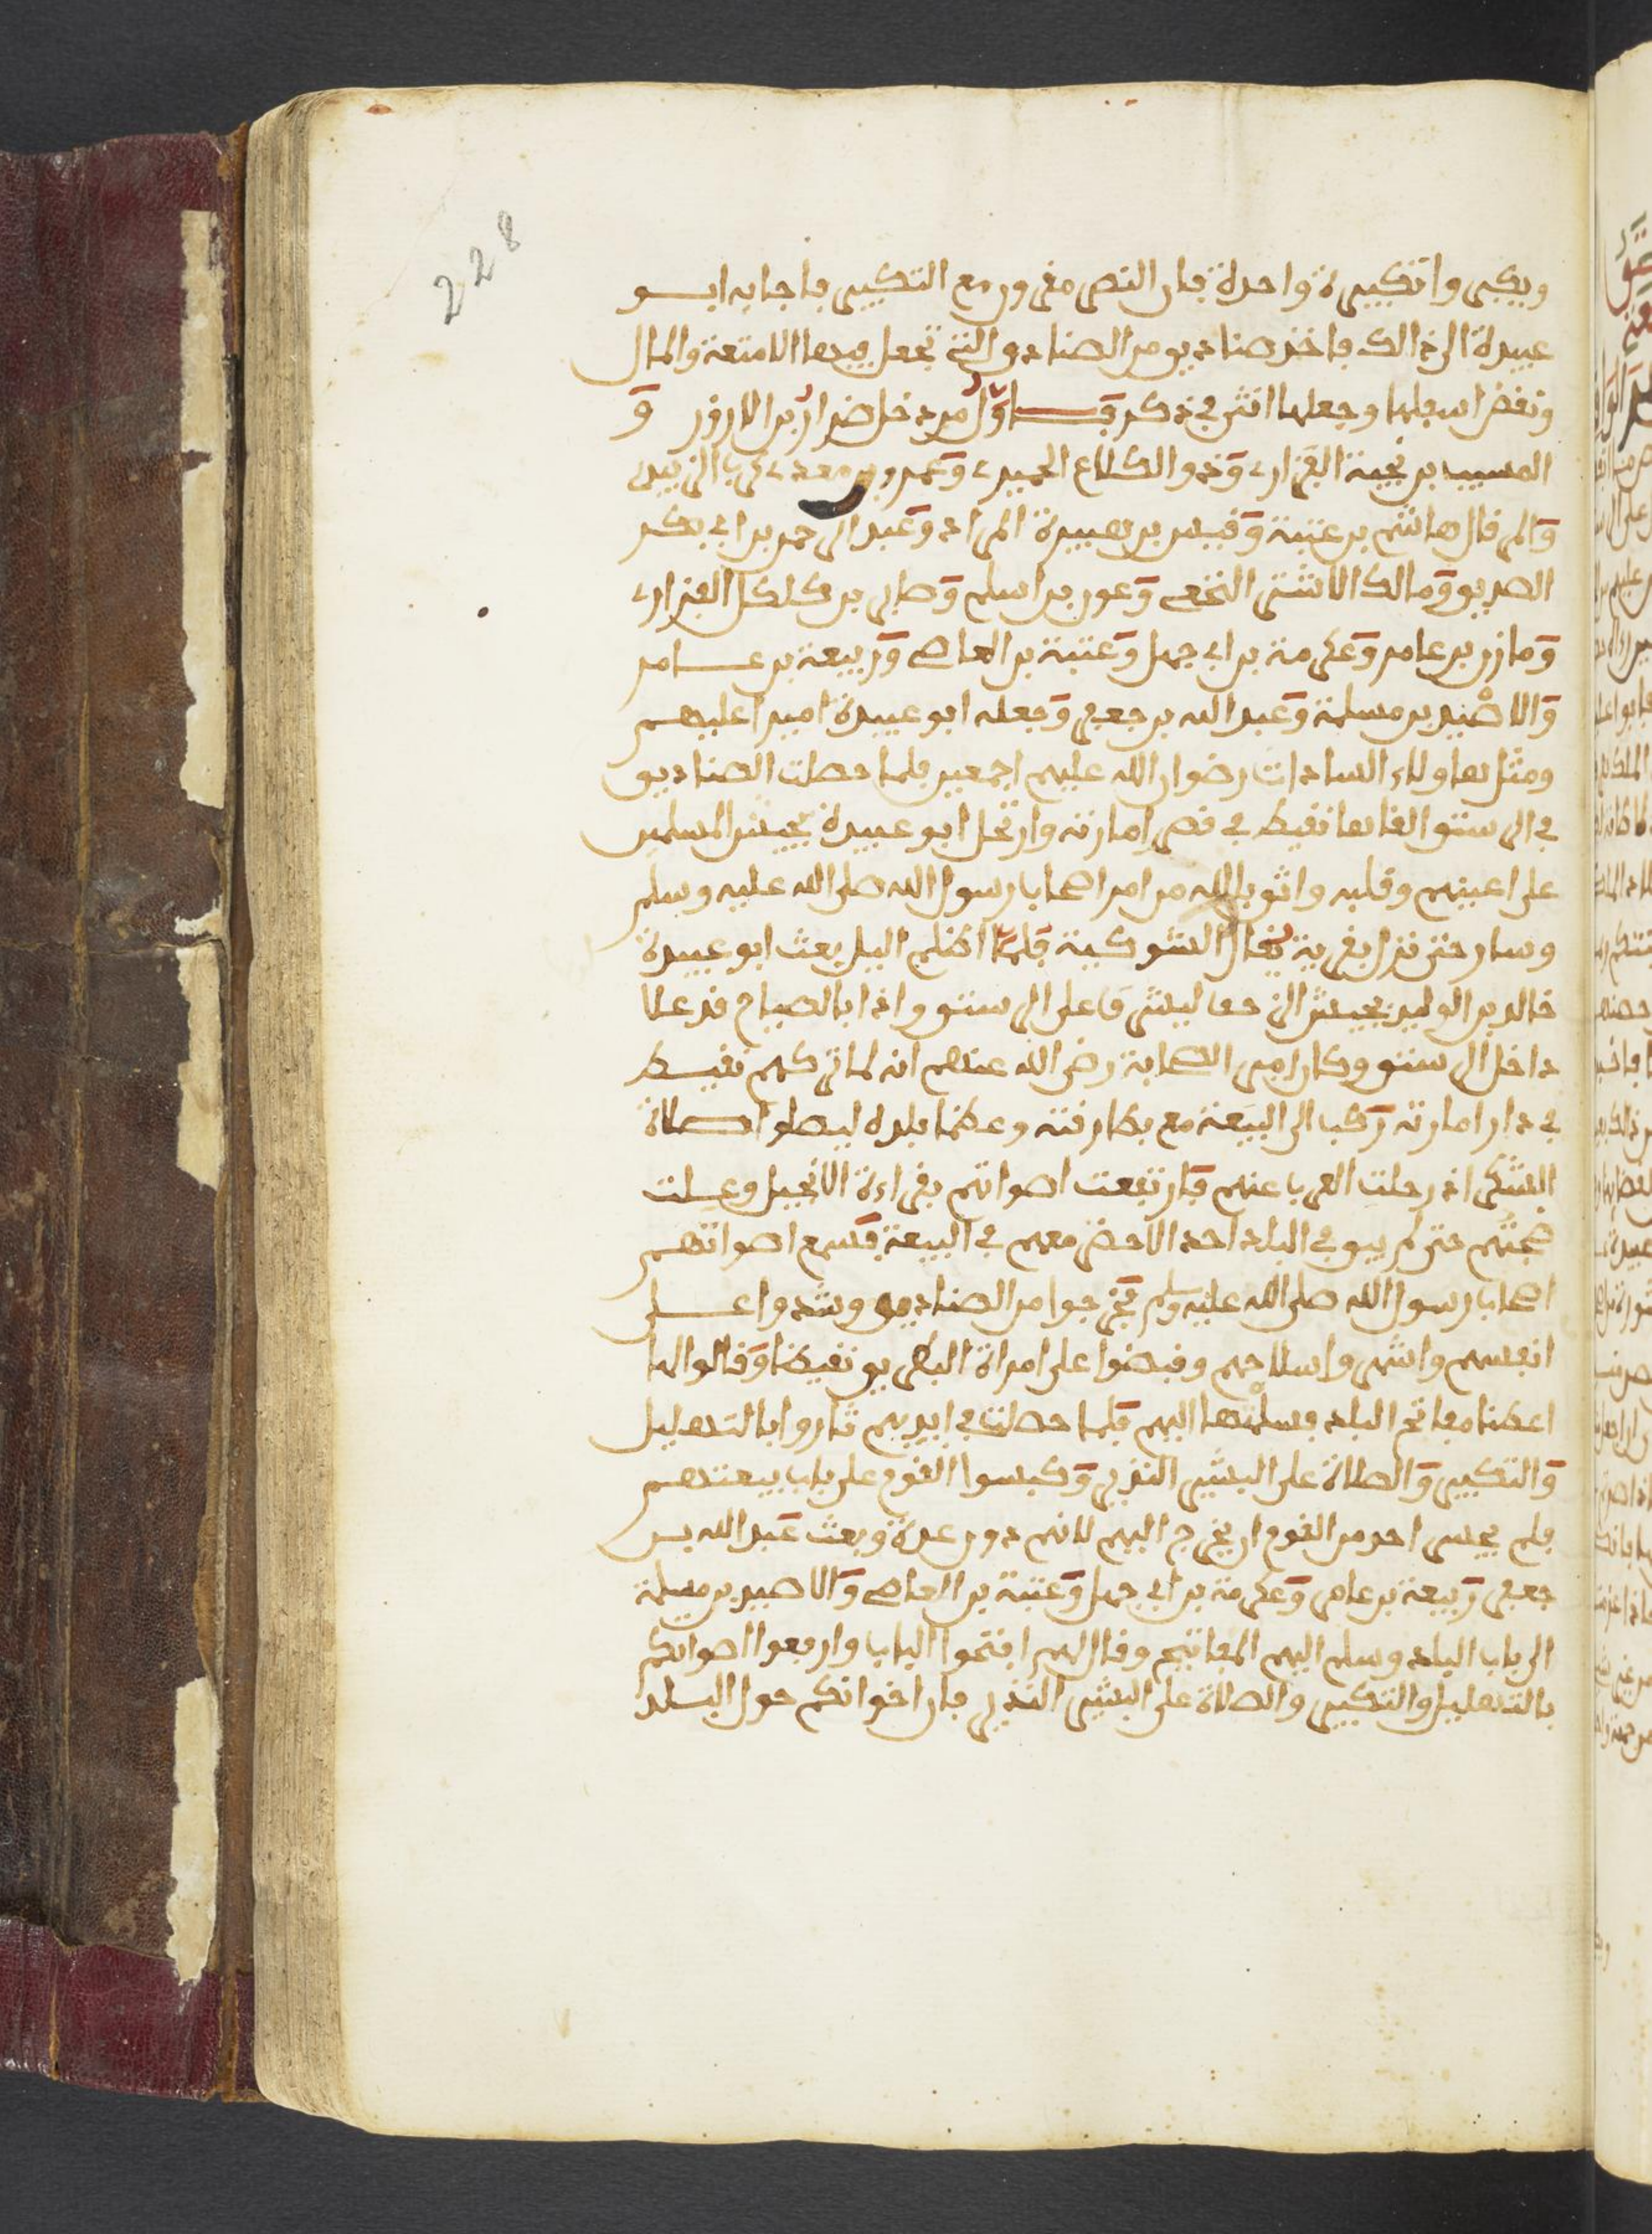 228
ويكبروا تكبيرة واحدة فان النصر مقرون مع التكبير فاجابه ابو
عبيدة الى ذالك فاخذ صناديق من الصناديق التي تجعل فيها الامتعة والمال
ونقض اسفلها وجعلها انثى في ذكر فاول من دخل ضرار بن الازور و
المسيب بن نجيبة الفزاري وذو الكلاع الحميري وعمرو بن معدي كرب الزبيدي
والمرقال هاشم بن عتبة وقيس بن هبيرة المرادي وعبد الرحمن بن ابي بكر
الصديق ومالك الاشتر النخعي وعون بن اسلم وصابر بن كلكل الفزاري
ومازن بن عامر وعكرمة بن ابي جهل وعتبة بن العاص وربيعة بن عامر
والاصيد بن مسلمة وعبد الله بن جعفر وجعله ابو عبيدة اميرا عليهم
ومثل هاولاء السادات رضوان الله عليهم اجمعين فلما حصلت الصناديق
في الرستن القاها نقيطر في قصر امارته وارتحل ابو عبيدة بجيش المسلمين
على اعينهم وقلبه واثق بالله من امر اصحاب رسول الله صلى الله عليه وسلم
وسار حتى نزل بقرية يقال الشوكية فلما اظلم اليل بعث ابو عبيدة
خالد بن الوليد بجيش الزحف ليشرف على الرستن واذا بالصياح قد علا
داخل الرستن وكان من الصحابة رضي الله عنهم انه لما تركهم نقيطر
في دار امارته ركب الى البيعة مع بطارقته وعظما بلده ليصلوا صلاة
الشكر اذ رحلت العرب عنهم فارتفعت اصواتهم بقراءة الانجيل وعلت
ضجتهم حتى لم يبق في البلد احد الا حضر معهم في البيعة فسمع اصواتهم
اصحاب رسول الله صلى الله عليه وسلم فخرجوا من الصناديق وشدوا على
انفسهم واشهروا سلاحهم وقبضوا على امراة البطريق نقيطر وقالوا لها
اعطنا مفاتح البلد فسلمتها اليهم فلما حصلت في ايديهم ثاروا بالتهليل
والتكبير والصلاة على البشير النذير وكبسوا القوم على باب بيعتهم
فلم يجسر احد من القوم ان يخرج اليهم لانهم دون عدة وبعث عبد الله بن
جعفر ربيعة بن عامر وعكرمة بن ابي جهل وعتبة بن العاص والاصيد بن مسلمة
الى باب البلد وسلم اليهم المفاتيح وقال لهم افتحوا الباب وارفعوا اصواتكم
بالتهليل والتكبير والصلاة على البشير النذير فان اخوانكم حول البلد